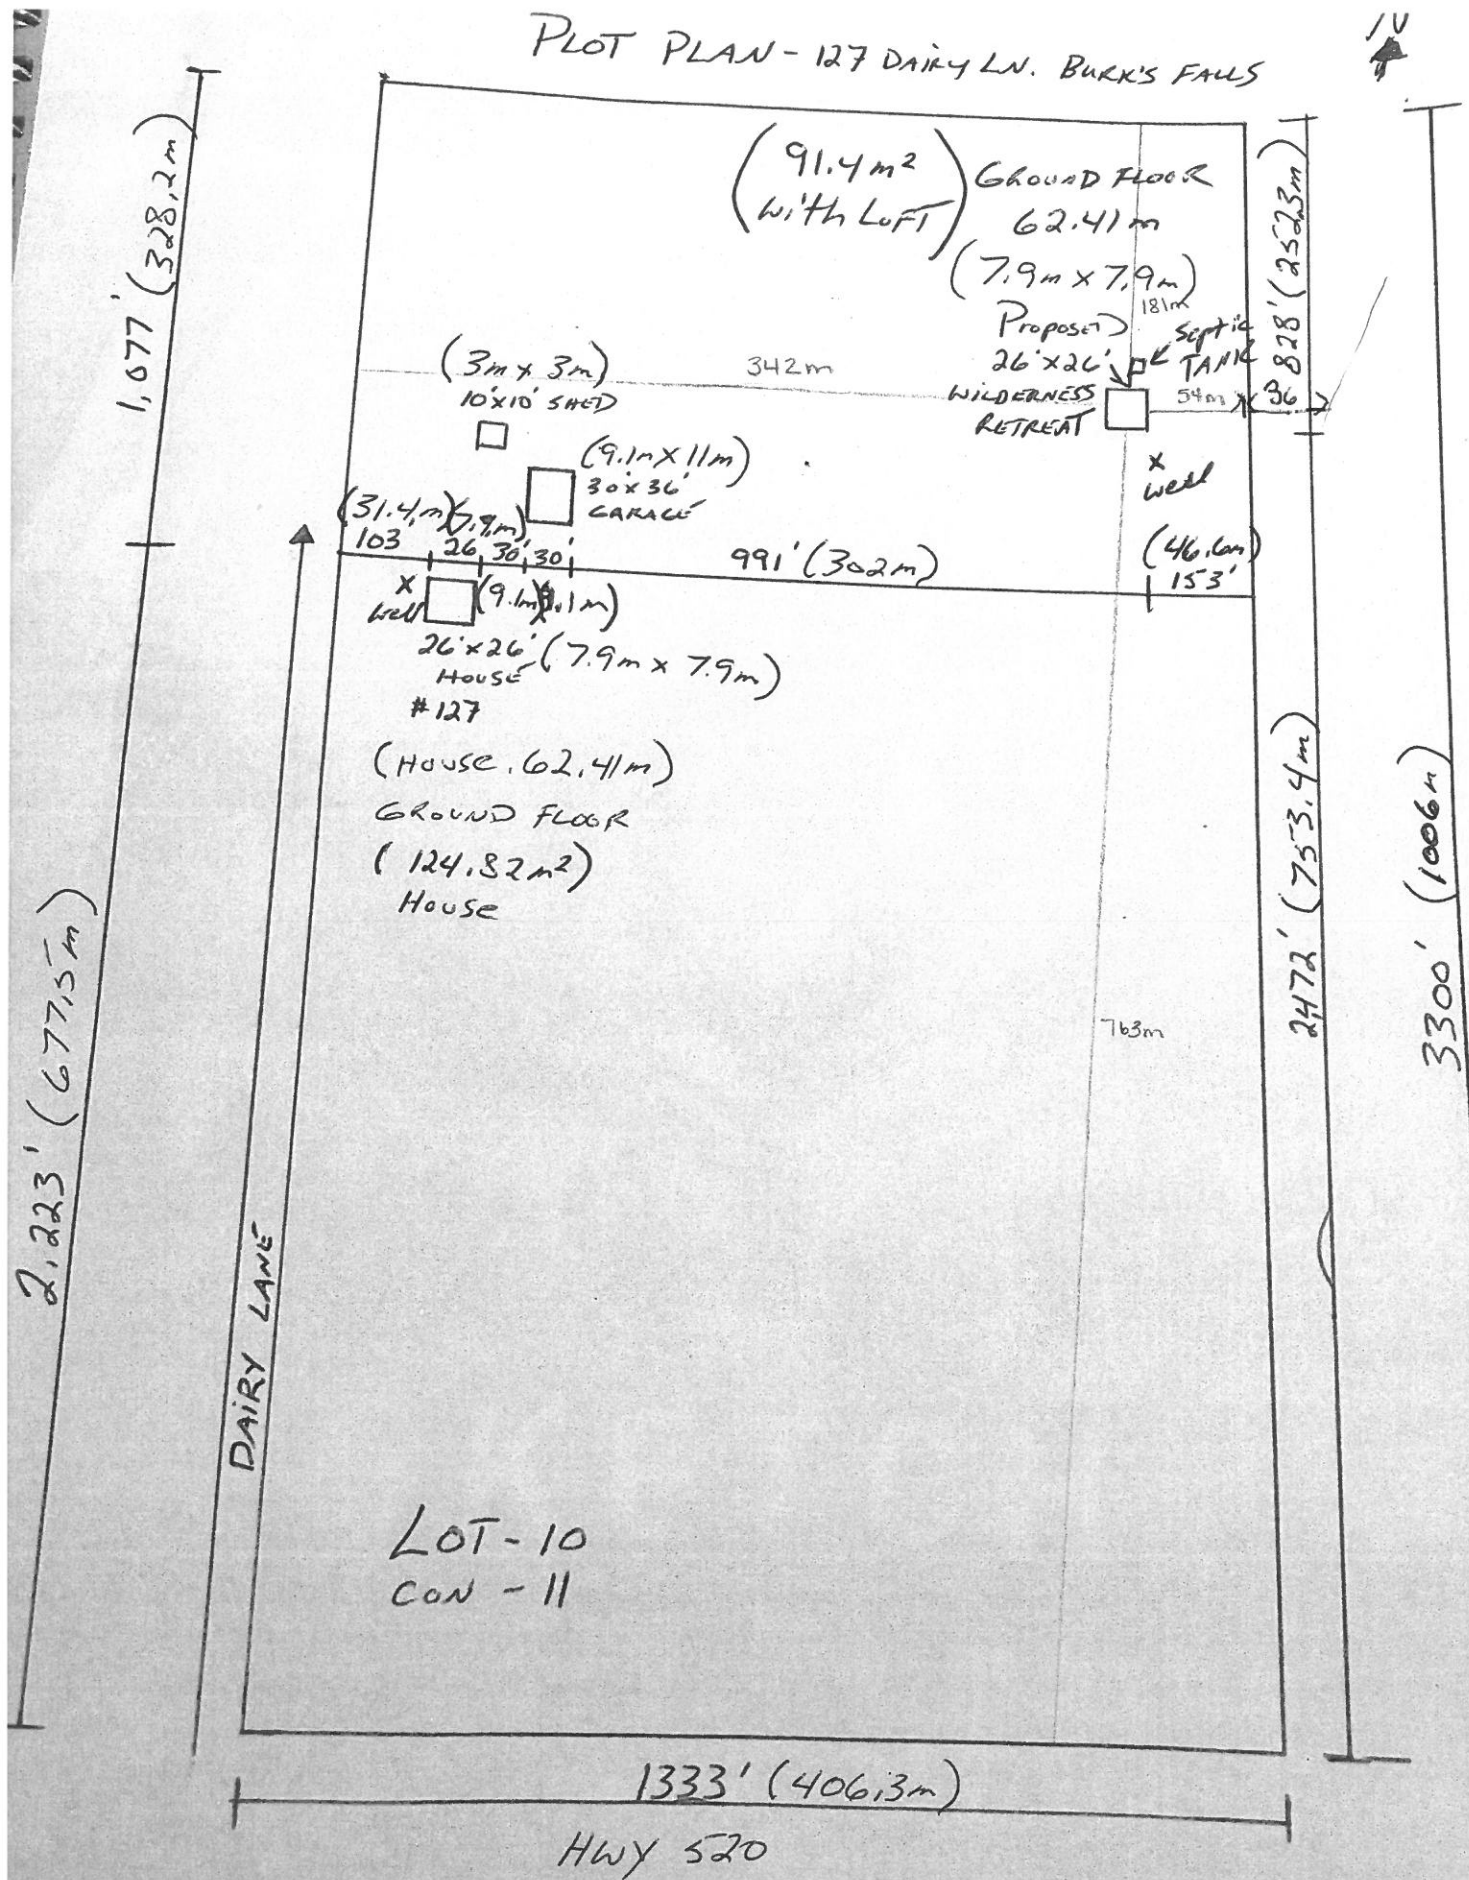 PLOT PLAN - 127 DAIRY LN. BURK'S FALLS
N
1,077' (328,2m)
(91.4m²
with LOFT)
GROUND FLOOR
62.41m
(7.9m x 7.9m)
181m
828' (252,3m)
Proposed
26'x26'
WILDERNESS
RETREAT
Septic
TANK
342m
54m
36
(3m x 3m)
10'x10' SHED
(9.1m X 11m)
30'x36'
GARAGE
x
well
(31.4,m)
103
(7.9,m)
26
30'
30'
991' (302m)
(46.6m)
153'
x
well
(9.1m)
(9.1m)
26'x26' (7.9m x 7.9m)
HOUSE
#127
(House. 62.41m)
GROUND FLOOR
(124.82m²)
House
2,223' (677,5m)
DAIRY LANE
763m
2,472' (753.4m)
3300' (1006m)
LOT - 10
CON - 11
1333' (406,3m)
HWY 520